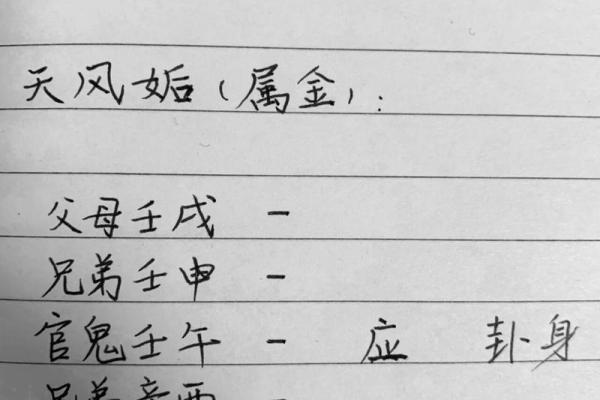 天风姤（属金）:
父母壬戌 -
兄弟壬申 -
官鬼壬午 - 应 卦身
兄弟辛酉 -